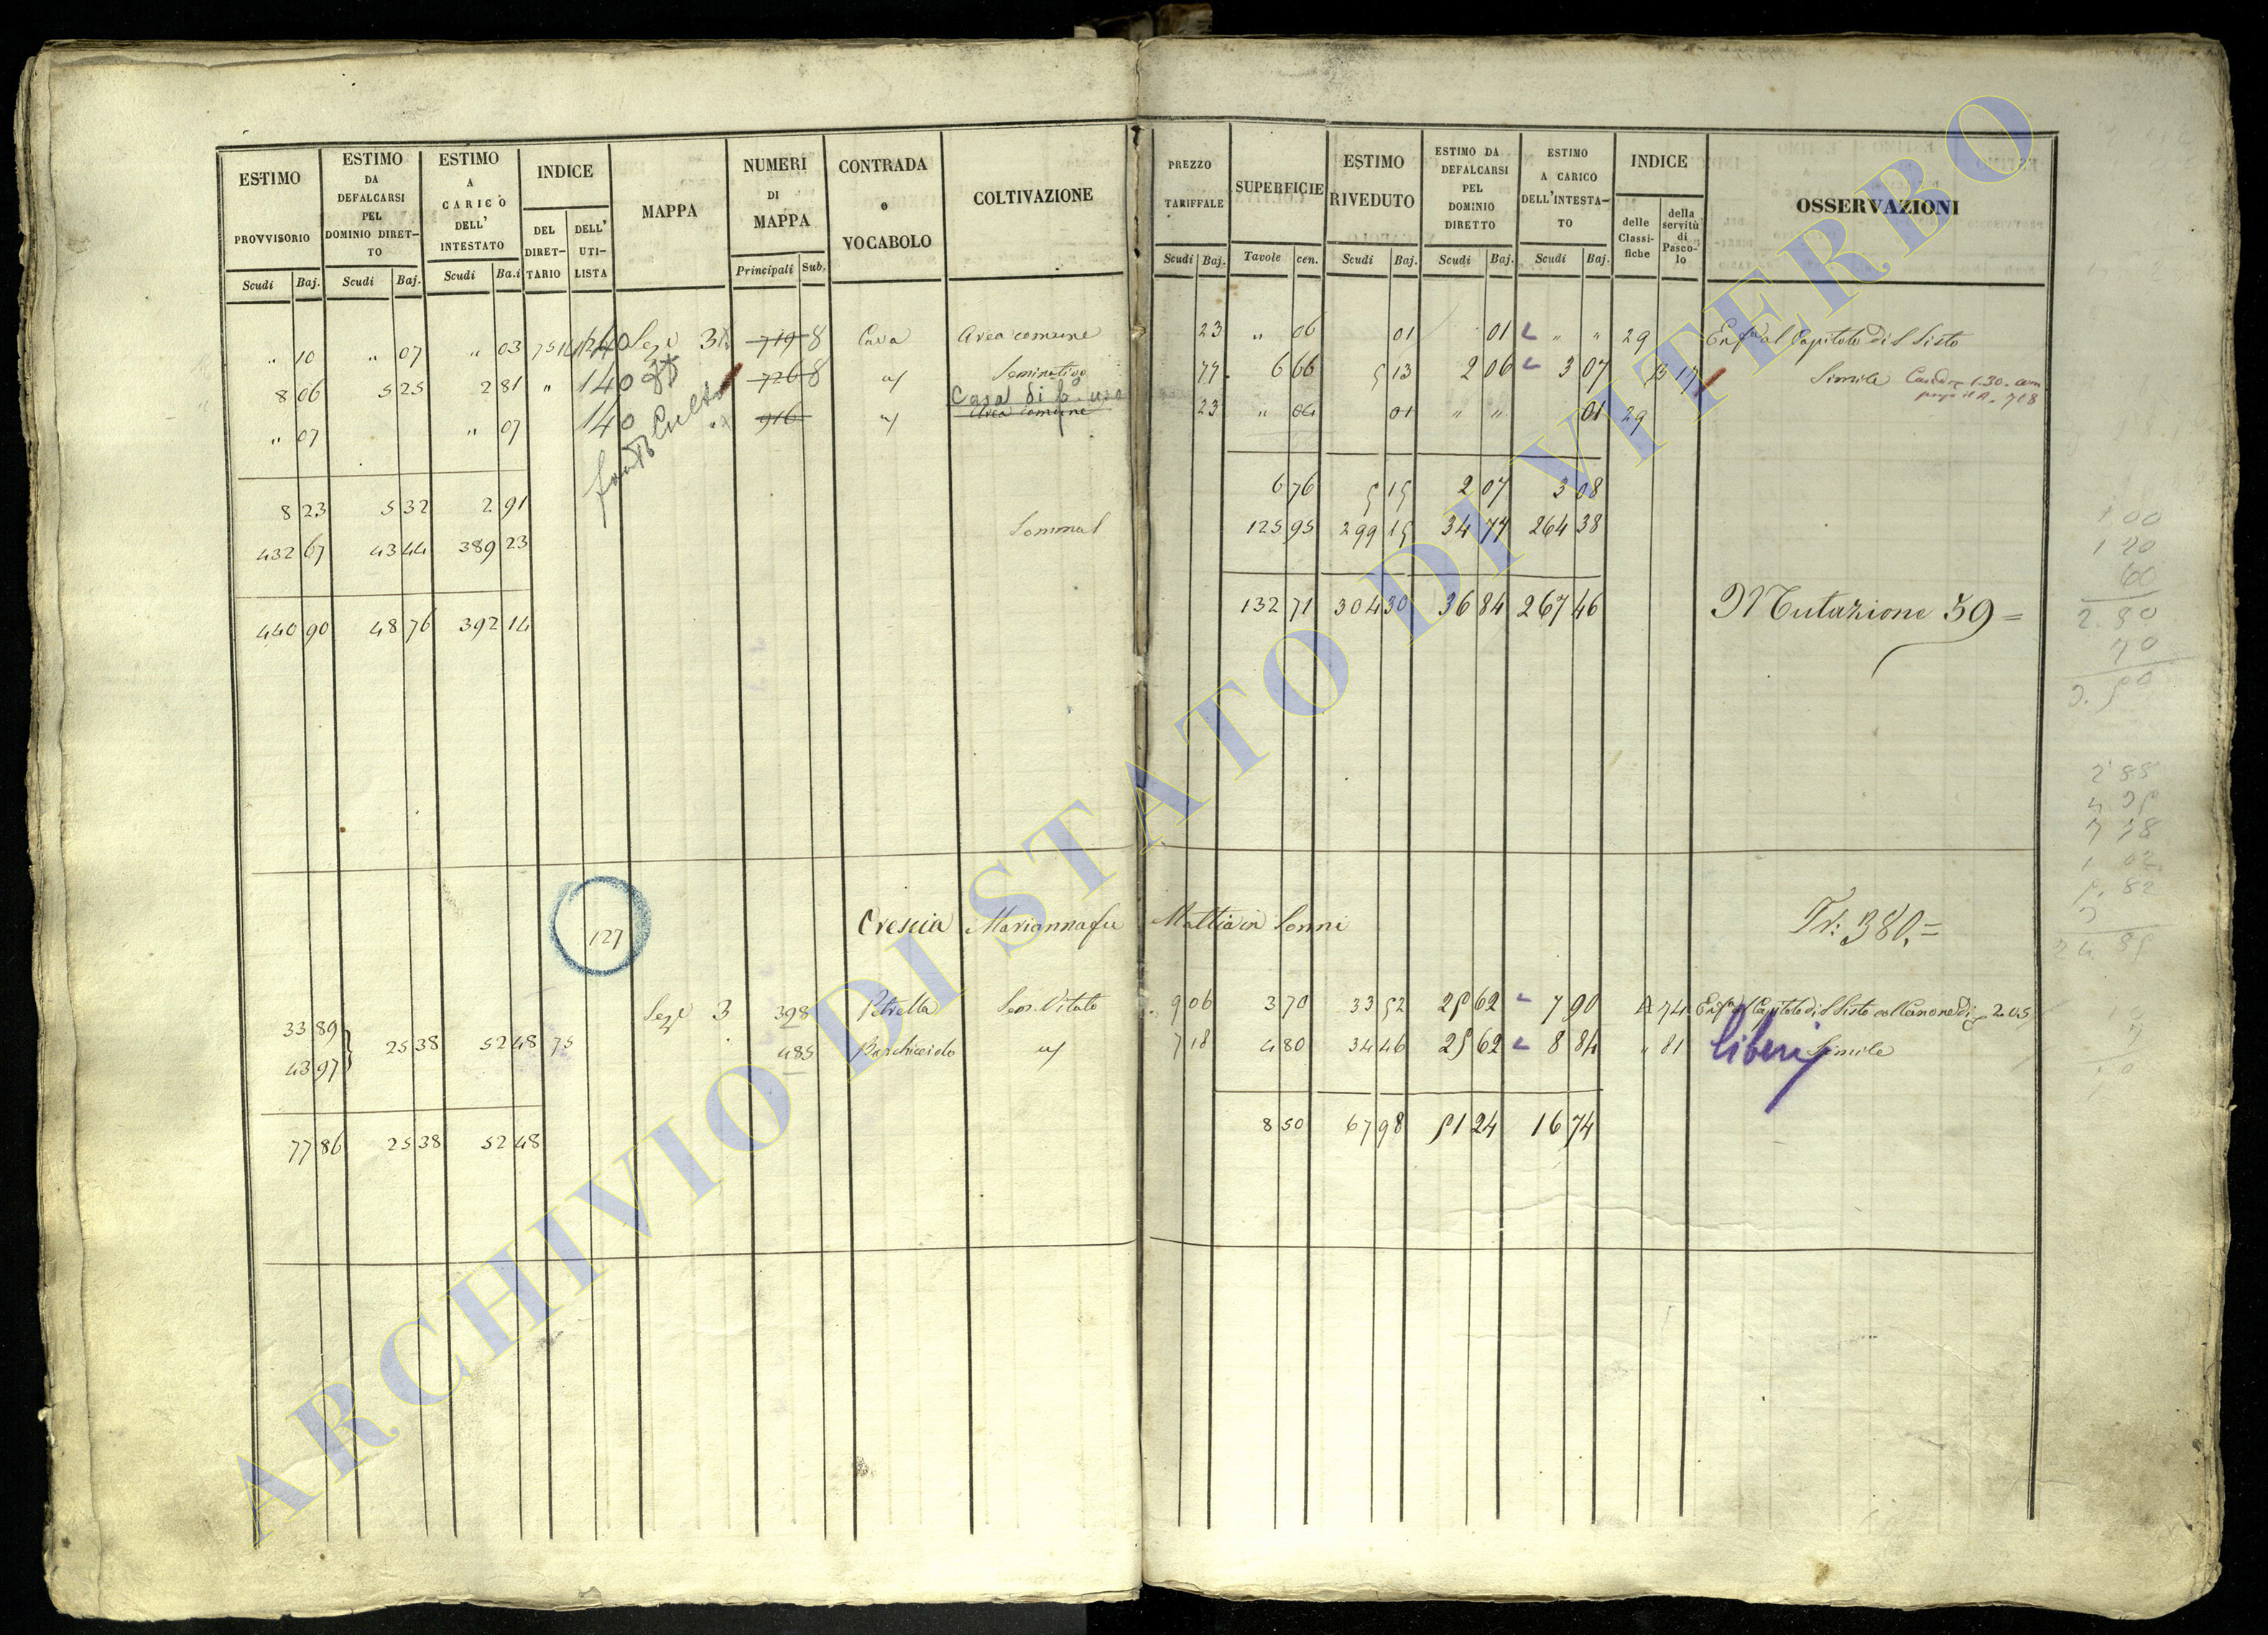 ESTIMO PROVVISORIO Scudi Baj.
ESTIMO DA DEFALCARSI PEL DOMINIO DIRETTO Scudi Baj.
ESTIMO A CARICO DELL' INTESTATO Scudi Ba.i
INDICE DEL DIRETTARIO DELL' UTILISTA
MAPPA
NUMERI DI MAPPA Principali Sub.
CONTRADA e VOCABOLO
COLTIVAZIONE
PREZZO TARIFFALE Scudi Baj.
SUPERFICIE Tavole cen.
ESTIMO RIVEDUTO Scudi Baj.
ESTIMO DA DEFALCARSI PEL DOMINIO DIRETTO Scudi Baj.
ESTIMO A CARICO DELL'INTESTATO Scudi Baj.
INDICE delle Classifiche della servitù di Pascolo
OSSERVAZIONI
" 10 " 07 " 03 751 140 Sez. 3 719 8 Cava Area comune 23 " 06 01 01 " " 29 Enf. al Capitolo di S Sisto
8 06 5 25 2 81 " 140 726 8 Seminativo 77 6 66 5 13 2 06 3 07 B 17 Simile
Casa di p. uso
" 07 " 07 140 916 Area comune 23 " 04 01 " " 01 29
fondo Culto
8 23 5 32 2 91 6 76 5 15 2 07 3 08
432 67 43 44 389 23 125 95 299 15 34 77 264 38
440 90 48 76 392 14 132 71 304 30 36 84 267 46 Mutazione 59 =
127 Crescia Marianna fu Mattia in Sonni Tr: 380.=
33 89 Sez. 3 398 Petrella Sem. Vitato 9 06 3 70 33 52 25 62 7 90 A 74 Enf. al Capitolo di S Sisto col Canone di 2.05
43 97 25 38 52 48 75 485 7 18 4 80 34 46 25 62 8 84 " 81 liberi Simile
77 86 25 38 52 48 8 50 67 98 51 24 16 74
ARCHIVIO DI STATO DI VITERBO